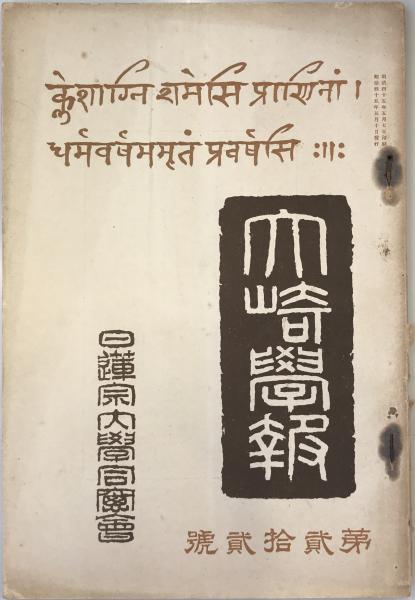 क्लेशाग्नि शमेसि प्राणिनां ।
धर्मवर्षममृतं प्रवर्षसि :॥:
明治四十五年五月七日印刷
明治四十五年五月十日發行
大崎學報
日蓮宗大學同窓會
第貳拾貳號